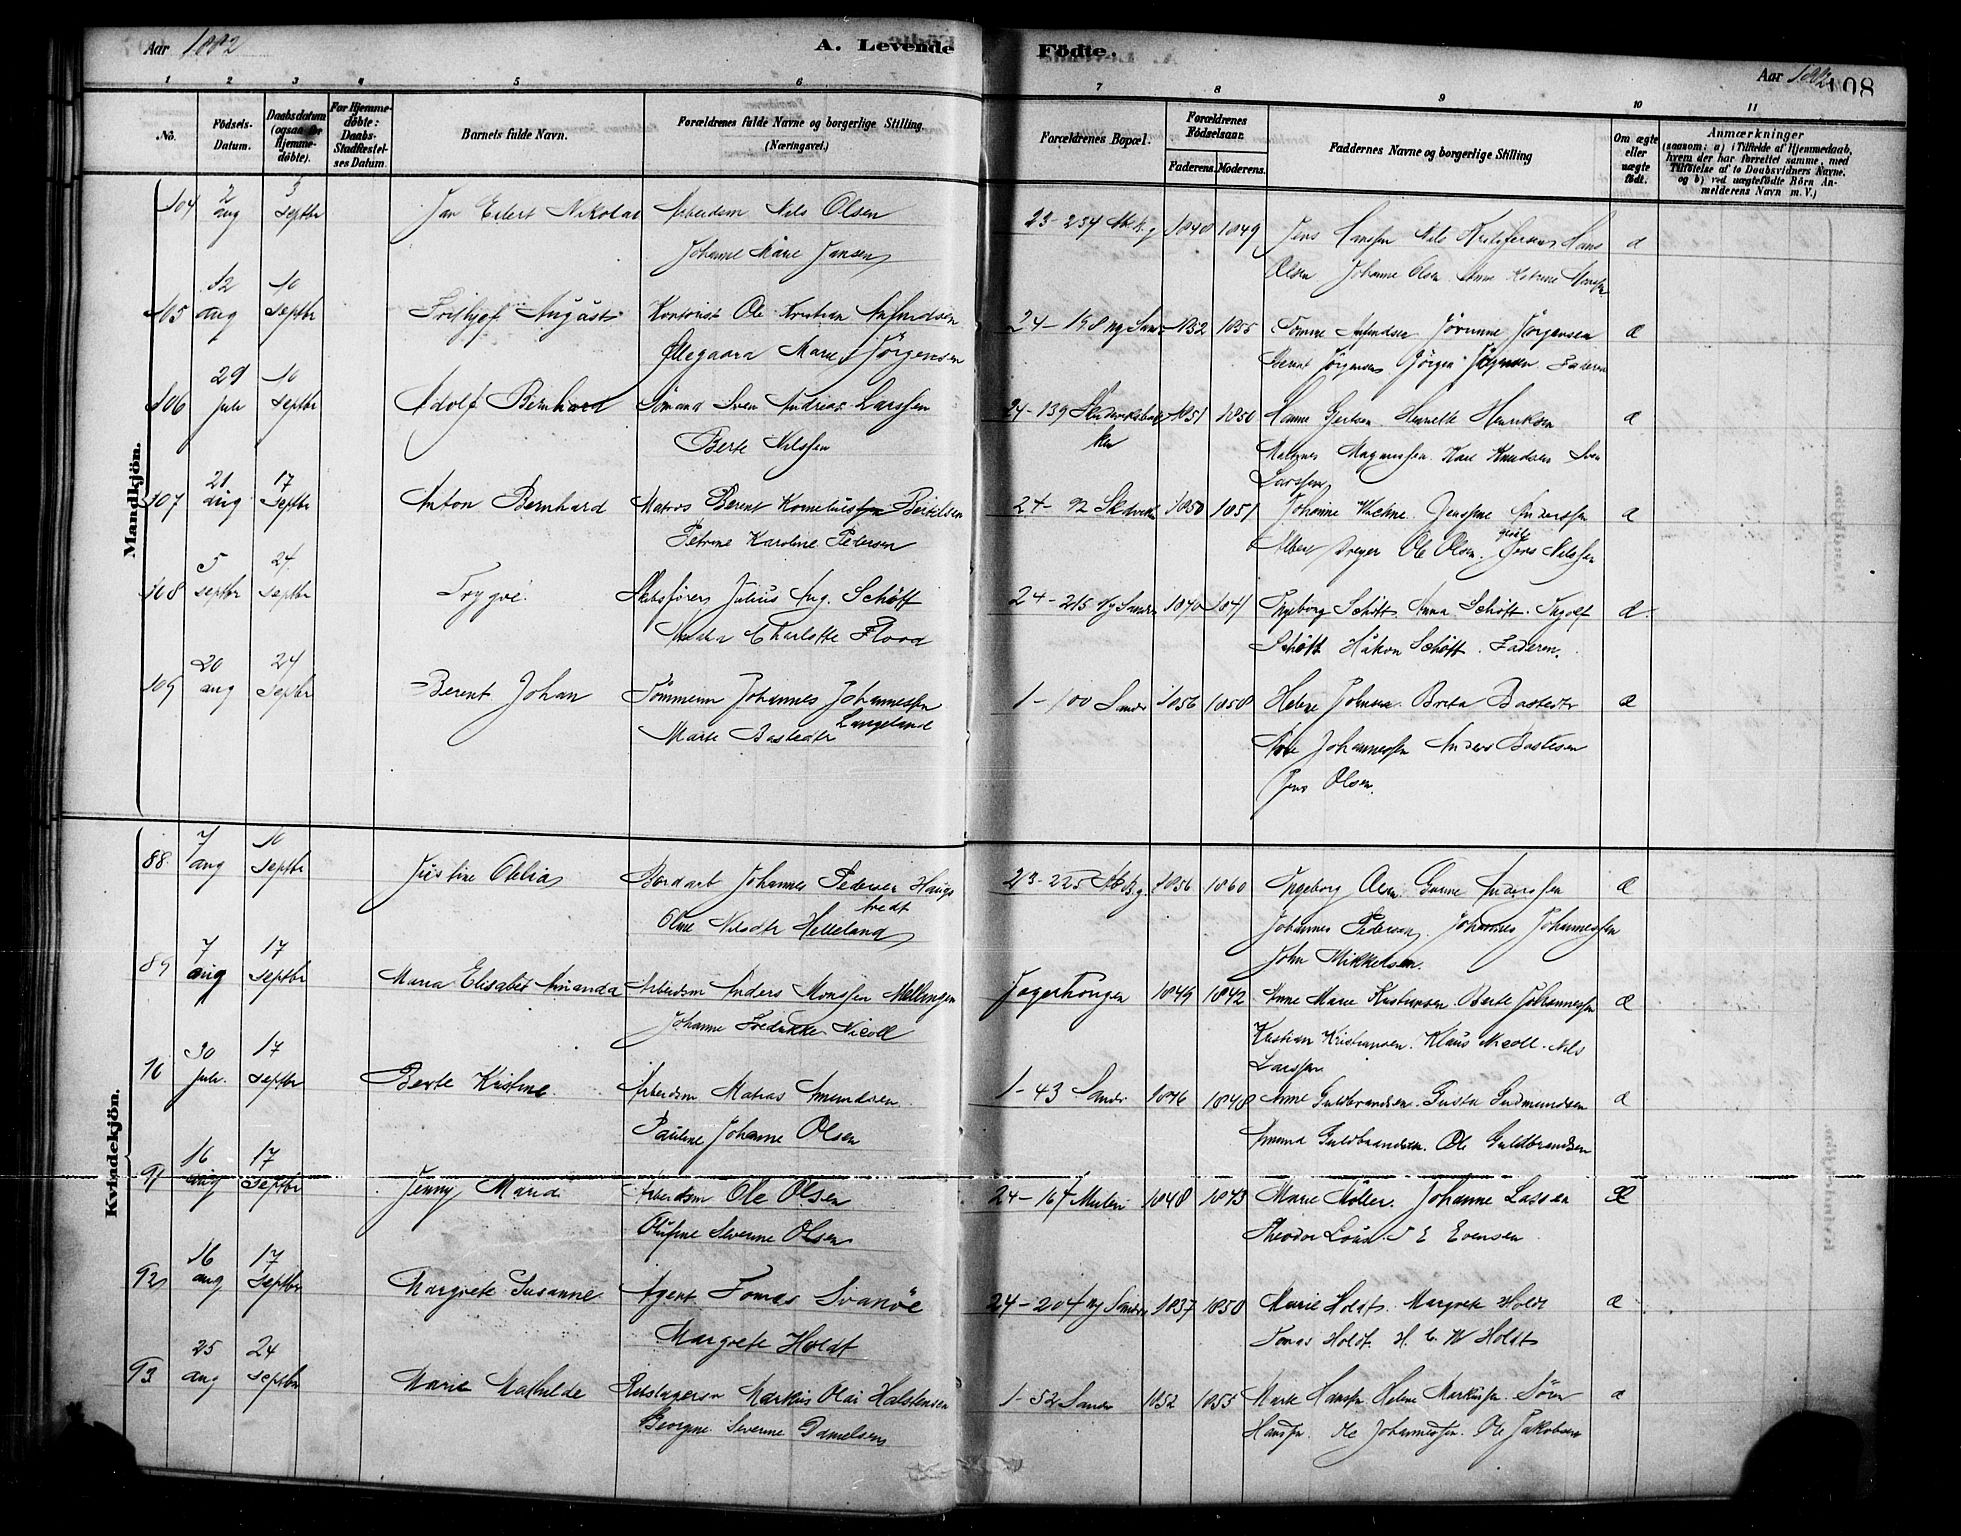 Aar 1882
A. Levende
Fødte.
Aar 1882
108
1 2 3 4 5 6 7 8 9 10 11
No.
Fødsels-Datum.
Daabsdatum (ogsaa for Hjemmedøbte).
For Hjemmedøbte: Daabs-Stadfæstelses Datum.
Barnets fulde Navn.
Forældrenes fulde Navne og borgerlige Stilling. (Næringsvei.)
Forældrenes Bopæl.
Forældrenes Fødselsaar.
Faderens.
Moderens.
Faddernes Navne og borgerlige Stilling
Om ægte eller uægte født.
Anmærkninger
(saasom: a) i Tilfælde af Hjemmedaab, hvem der har forrettet samme, med Tilføielse af to Daabsvidners Navne, og b) ved uægtefødte Børn Anmelderens Navn m. V.)
Mandkjön.
104 2 aug 3 Septbr Jan Eilert Nikolai Arbeidsm Nils Olsen 23-234 1848 1849 Jens Hansen Nils Kristofersen Hans
Johanne Marie Jansen Olsen Johanne Olsen Anne Katrine
105 12 aug 10 Septbr Fridthjof August Kontorist Ole Kristian Amundsen 24-198 Ny Sandv 1852 1855 Tomine Amundsen Jørinne Jørgensen æ
Ellegaara Marie Jørgensen Berent Jørgensen Jørgen Jørgensen Faderen
106 29 Juli 10 Septbr Adolf Bernhard Sömand Sven Andreas Larssen 24-139 1851 1850 Hanne Gertsen Henrikke Henriksen æ
Berte Nilssen Magnus Magnussen Karl Knudsen Sven
Larssen
107 21 aug 17 Septbr Anton Bernhard Matros Berent Korneliussen Bertelsen 24-92 1850 1851 Johanne Jenssine Anderssen æ
Petrine Karoline Pedersen Albert Dreyer Ole Olsen Jens Nilssen
108 5 Septbr 24 Septbr Trygve Skibsfører Julius Aug. Schøtt 24-215 Ny Sandv 1840 1841 Ingeborg Schøtt Anna Schøtt æ
Charlotte Flood Schøtt Håkon Schøtt Faderen.
109 20 aug 24 Septbr Berent Johan Tömmerm Johannes Johannessen 1-100 Sandv 1856 1858 Helene Johnsen Brita Bastedtr æ
Langeland
Marte Bastedtr Johannessen Anders Bastesen
Jens Olsen.
Kvindekjön.
88 7 aug 10 Septbr Justine Otelia Bordarb Johannes Pedersen Haugs 23-225 1856 1860 Ingeborg Olsen Gurine Anderssen æ
tvedt
Oline Nilsdtr Helleland Johannes Pedersen Johannes Johannessen
John Mikkelsen.
89 7 aug 17 Septbr Maria Elisabet Amanda Arbeidsm Anders Monssen Mellingen 1849 1842 Anne Marie Kristiansen Berte Johannessen æ
Johanne Fredrikke Nicoll Kristian Kristiansen. Klaus Nicoll. Nils
Larssen
90 30 Juli 17 Septbr Berte Kristine Arbeidsm Matias Amundsen 1-43 Sandv 1846 1848 Anne Guldbrandsen Gusta Gudmundsen æ
Pauline Johanne Olsen Amund Guldbrandsen. Ole Guldbrandsen
91 16 aug 17 Septbr Jenny Maria Arbeidsm Ole Olsen 24-167 1848 1843 Marie Møller Johanne Lassen æ
Olufine Severine Olsen Theodor Louis I E Evensen
92 16 aug 17 Septbr Margrete Susanne Agent Tomas Svanöe 24-204 Ny Sandv 1837 1850 Marie Holdt Margrete Holdt æ
Margrete Holdt Tomas Holdt. H. C. W Holdt
93 25 aug 24 Septbr Marie Mathilde Rebslagersv Markus Olai Halstensen 1-52 Sandv 1852 1855 Marte Hansen Helene Markussen Sören æ
Georgine Severine Danielsen Hanssen Ole Johannessen. Ole Jakobsen